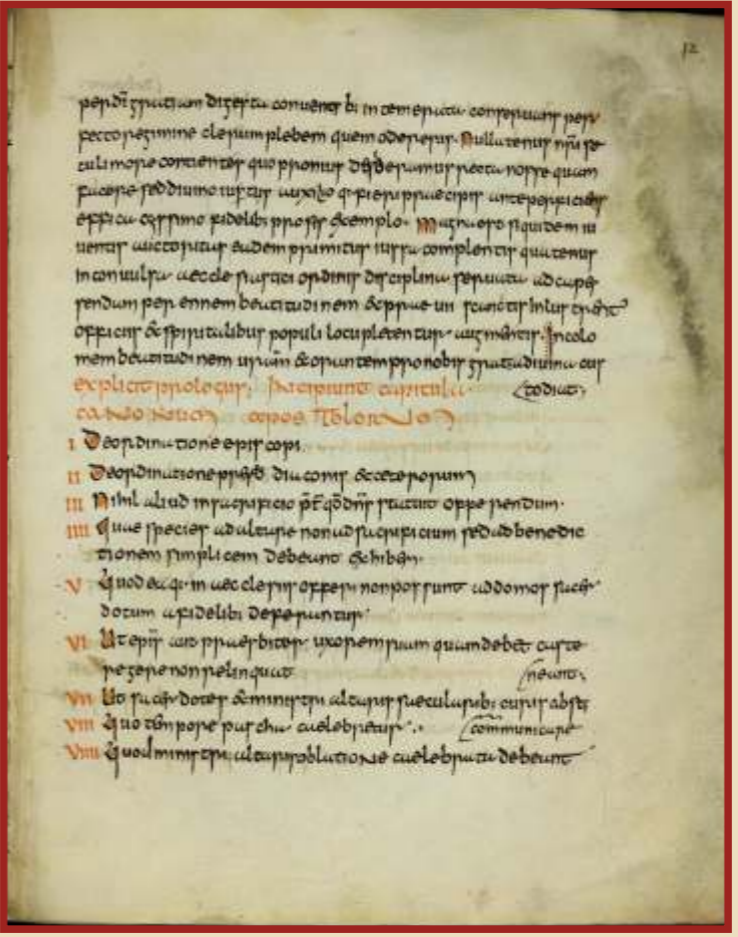 12
per dī gratiam digesta convenit bi intemerata conservans per
fecto regimine clerum plebem quem odereris. Nulla tenus nr̄i se
culi more contientes quo pronius recta nosse quam
facere sed divino iustus auxilio qi fieri praecipis ante perficies
efficacissimo fidelib; prosis exemplo. siquidem iu
ventis auctoritas eadem iussa complentis quatenus
inconvulsa aecclesiastici ordinis disciplina servata ad cape
sendum perennem beatitudinem & sanctis inlustrent
officiis & spiritalibus populi locupletentur augmentis. Incolo
mem beatitudinem & orantem pro nobis gratia divina cus
explicit prologus; Incipiunt capitula todiat;
canonum apostolorum
I De ordinatione episcopi
II De ordinatione prsb diaconis & ceterorum
III Nihil aliud in sacrificio pt̄ qōd dn̄s statuit offerendum.
IIII Quae species ad altare non ad sacrificium sed ad benedic
tionem simplicem debeant exhiberi.
V Quod ea qi in aecclesiis offerri non possunt ad domos sacer
dotum a fidelib; deferantur
VI Ut ep̄s aut praesbiter uxorem suam quam debet caste
regere non relinquat neant;
VII Ut sacerdotes & ministri altaris saecularib; curis absti
VIII Quo tempore pascha caelebretur communicare
VIIII Quod ministri altaris oblatione caelebrata debeant